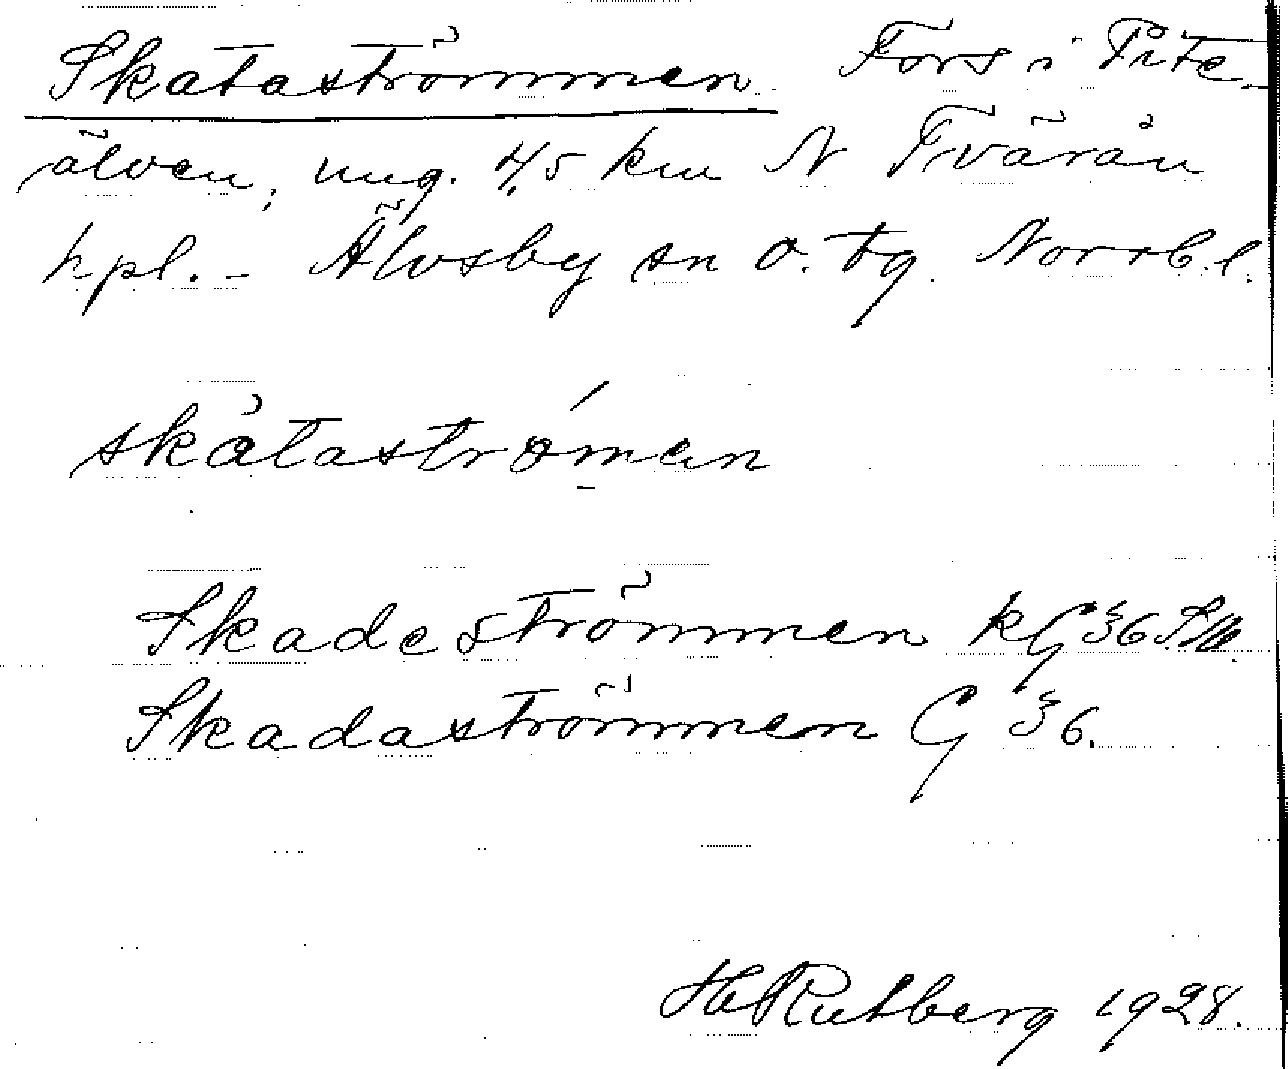 Skataströmmen Fors i Pite-
älven, ung. 4,5 km N Tvärån
hpl. - Älvsby sn o. tg. Norrb. l.
skàtastrǿmen
Skadeströmmen kG 36
Skadaströmmen G 36.
H Rutberg 1928.